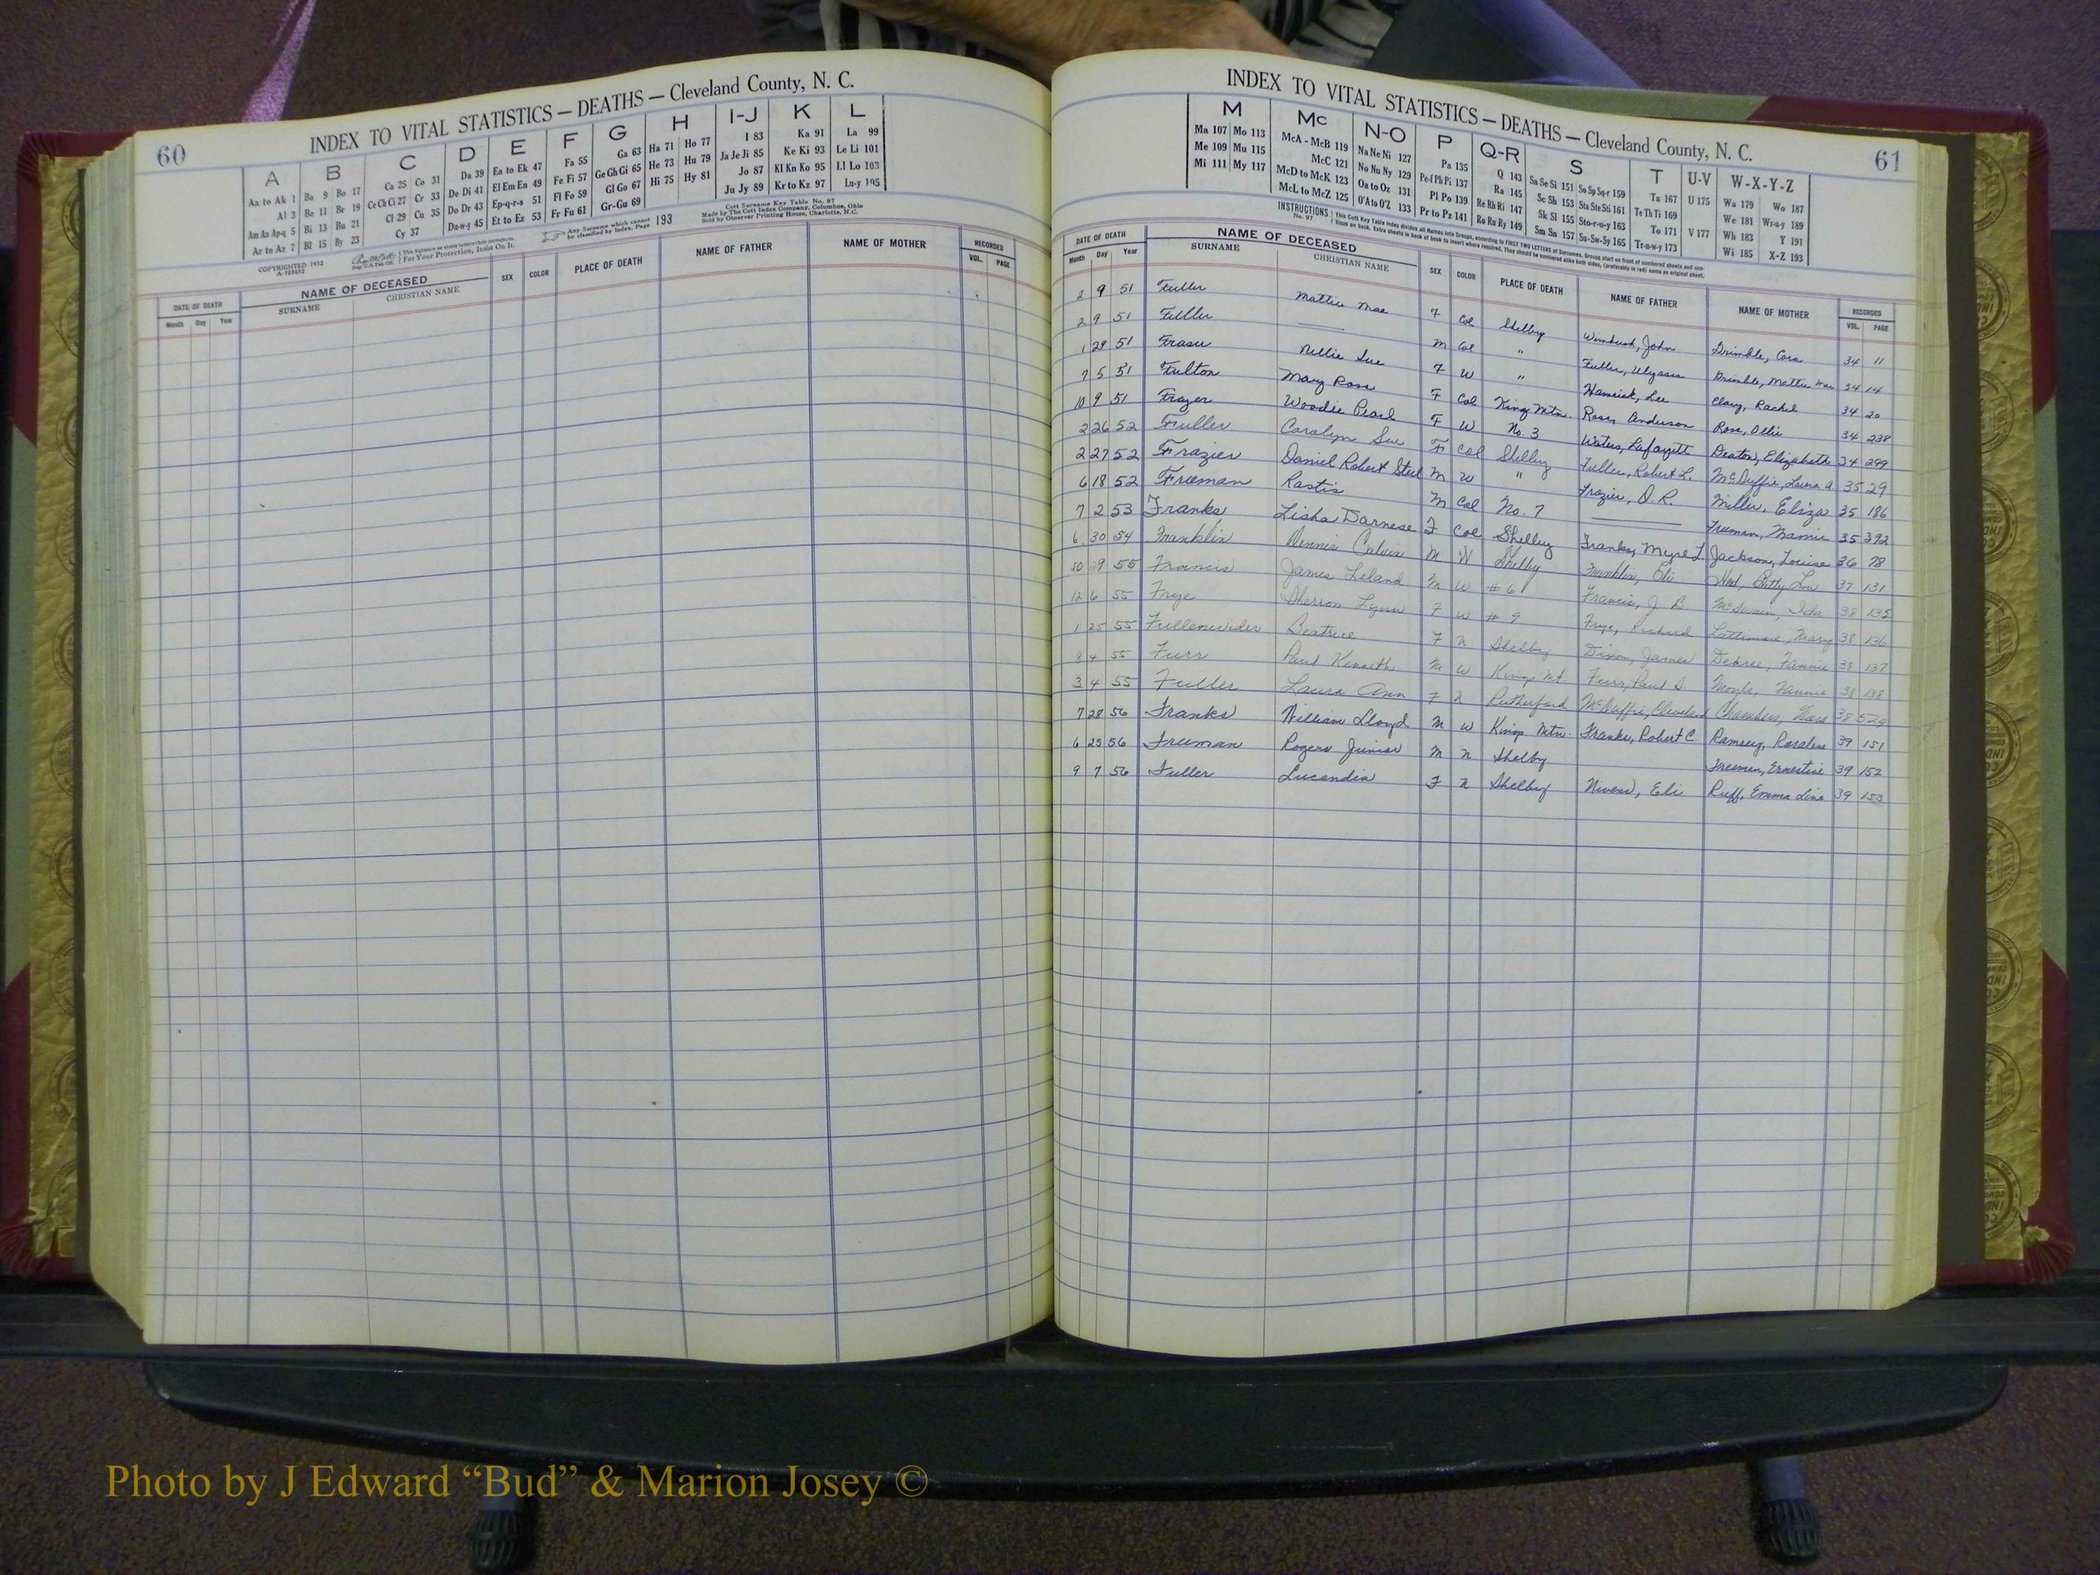 60
INDEX TO VITAL STATISTICS — DEATHS — Cleveland County, N. C.
A B C D E F G H I-J K L
Aa to Ak 1 Ba 9 Bo 17 Ca 25 Co 31 Da 39 Ea to Ek 47 Fa 55 Ga 63 Ha 71 Ho 77 I 83 Ka 91 La 99
Al 3 Be 11 Br 19 Ce Ch Ci 27 Cr 33 De Di 41 El Em En 49 Fe Fi 57 Ge Gh Gi 65 He 73 Hu 79 Ja Je Ji 85 Ke Ki 93 Le Li 101
Am An Ap-q 5 Bi 13 Bu 21 Cl 29 Cu 35 Do Dr 43 Ep-q-r-s 51 Fl Fo 59 Gl Go 67 Hi 75 Hy 81 Jo 87 Kl Kn Ko 95 Ll Lo 103
Ar to Az 7 Bl 15 By 23 Cy 37 Du-w-y 45 Et to Ez 53 Fr Fu 61 Gr-Gu 69 Ju Jy 89 Kr to Kz 97 Lu-y 105
COPYRIGHTED 1952
A-103652
For Your Protection, Insist On It.
Any Surname which cannot be classified by Index, Page 193
Cott Surname Key Table No. 97
Made by The Cott Index Company, Columbus, Ohio
Sold by Observer Printing House, Charlotte, N.C.
DATE OF DEATH NAME OF DECEASED SEX COLOR PLACE OF DEATH NAME OF FATHER NAME OF MOTHER RECORDED
Month Day Year SURNAME CHRISTIAN NAME VOL. PAGE
INDEX TO VITAL STATISTICS — DEATHS — Cleveland County, N. C.
61
M Mc N-O P Q-R S T U-V W-X-Y-Z
Ma 107 Mo 113 McA - McB 119 Na Ne Ni 127 Pa 135 Q 143 Sa Se Si 151 So Sp Sq-r 159 Ta 167 U 175 Wa 179 Wo 187
Me 109 Mu 115 McC 121 No Nu Ny 129 Pe-f Ph Pi 137 Ra 145 Sc Sh 153 Sta Ste Sti 161 Te Th Ti 169 We 181 Wr-u-y 189
Mi 111 My 117 McD to McK 123 Oa to Oz 131 Pl Po 139 Re Rh Ri 147 Sk Sl 155 Sto-r-u-y 163 To 171 V 177 Wh 183 Y 191
McL to McZ 125 O'A to O'Z 133 Pr to Pz 141 Ro Ru Ry 149 Sm Sn 157 Su-Sw-Sy 165 Tr-u-w-y 173 Wi 185 X-Z 193
INSTRUCTIONS No. 97 This Cott Key Table Index divides all Names into Groups, according to FIRST TWO LETTERS of Surnames.
DATE OF DEATH NAME OF DECEASED SEX COLOR PLACE OF DEATH NAME OF FATHER NAME OF MOTHER RECORDED
Month Day Year SURNAME CHRISTIAN NAME VOL. PAGE
2 9 51 Fuller Mattie Mae F Col Shelby John Cora 34 11
2 9 51 Fuller —— M Col " Fuller, Ulysses Mattie Mae 34 14
1 29 51 Nellie Sue F W " Hamrick, Lee Clary, Rachel 34 20
7 5 51 Fulton Mary Rose F Col Kings Mtn. Ross, Anderson Ross, Ollie 34 238
10 9 51 Frazer Woodie Pearl F W No. 3 Waters, Lafayette Deaton, Elizabeth 34 299
2 26 52 Fuller Caralyn Sue F Col Shelby Fuller, Robert L. McDuffie, Laura A. 35 29
2 27 52 Frazier Daniel Robert Steel M W " Frazier, D. R. Miller, Eliza 35 186
6 18 52 Freeman Rastis M Col No. 7 —— Freeman, Mamie 35 392
7 2 53 Franks Lisha Darnese F Col Shelby Franks, Myrl L. Jackson, Louise 36 78
6 30 54 Franklin Dennis Calvin M W Shelby Franklin, Betty Lou 37 131
10 9 55 Francis James Leland M W #6 Francis, J. B. McSwain, Ida 38 135
12 6 55 Frye Sharron Lynn F W #9 Frye, Richard Lattimore, Mary 38 136
1 25 55 Fullenwider Beatrice F N Shelby Dixon, James Fannie 38 137
8 4 55 Furr Paul Kenneth M W Kings Mt. Furr, Paul S. 38 138
3 4 55 Fuller Laura Ann F N Rutherford McDuffie, Cleveland Chambers, 38 529
7 28 56 Franks William Lloyd M W Kings Mtn. Franks, Robert C. Ramsey, Rosalene 39 151
6 25 56 Freeman Rogers Junior M N Shelby Freeman, Ernestine 39 152
9 7 56 Fuller Lucendia F N Shelby Nivens, Eli Ruff, Emma Line 39 153
Photo by J Edward “Bud” & Marion Josey ©